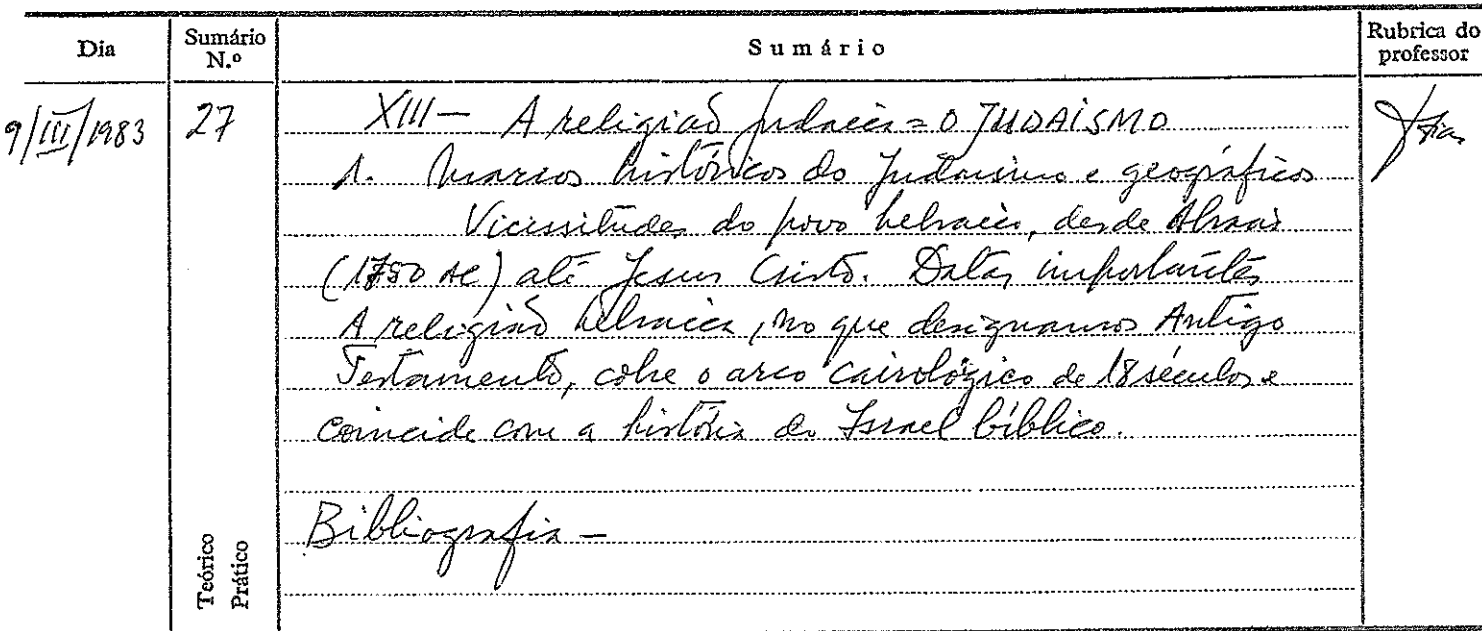 Dia
Sumário N.º
Sumário
Rubrica do professor
9/III/1983
27
XIII — A religião judaica = O JUDAÍSMO
1. Marcos históricos do Judaismo e geográficos
Vicissitudes do povo hebraico, desde Abraão
(1750 AC) até Jesus Cristo. Datas importantes
A religião hebraica, no que designamos Antigo
Testamento, cobre o arco cairológico de 18 séculos e
coincide com a história do Israel bíblico.
Bibliografia —
Teórico
Prático